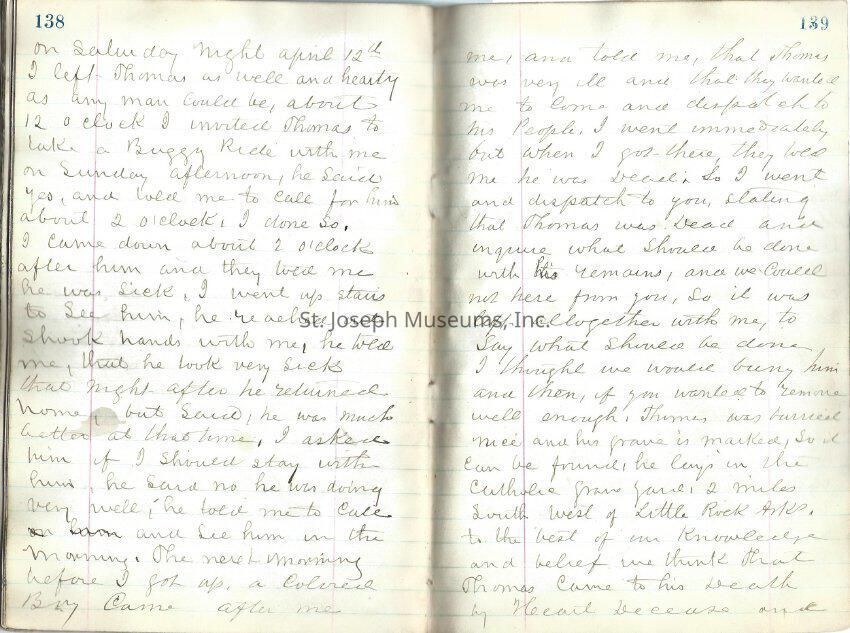 138
on Saturday night april 12th
I left Thomas as well and hearty
as any man could be, about
12 o clock I invited Thomas to
take a Buggy Ride with me
on Sunday afternoon, he Said
yes, and told me to call for him
about 2 o'clock, I done So.
I came down about 2 o'clock
after him and they told me
he was Sick, I went up stairs
to See him, he reached
Shook hands with me, he told
me, that he took very Sick
that night after he returned
home, but Said, he was much
better at that time, I asked
him if I should stay with
him, he Said no he was doing
very well, he told me to Call
and See him in the
morning. The next morning
before I got up, a Colored
Boy Came after me
139
me, and told me, that Thomas
was very ill and that they wanted
me to Come and dispatch to
his People, I went immediately
but when I got there, they told
me he was Dead, So I went
and dispatch to you, stating
that Thomas was Dead and
inquire what Should be done
with his remains, and we Could
not here from you, So it was
alltogether with me, to
Say what Should be done
I thought we would bury him
and then, if you wanted to remove
well enough, Thomas was burried
nice and his grave is marked, So it
Can be found, he lays in the
Catholic grave yard, 2 miles
South west of Little Rock Arks.
to the best of our Knowledge
and belief we think that
Thomas Came to his Death
by Heart Decease and
St. Joseph Museums, Inc.